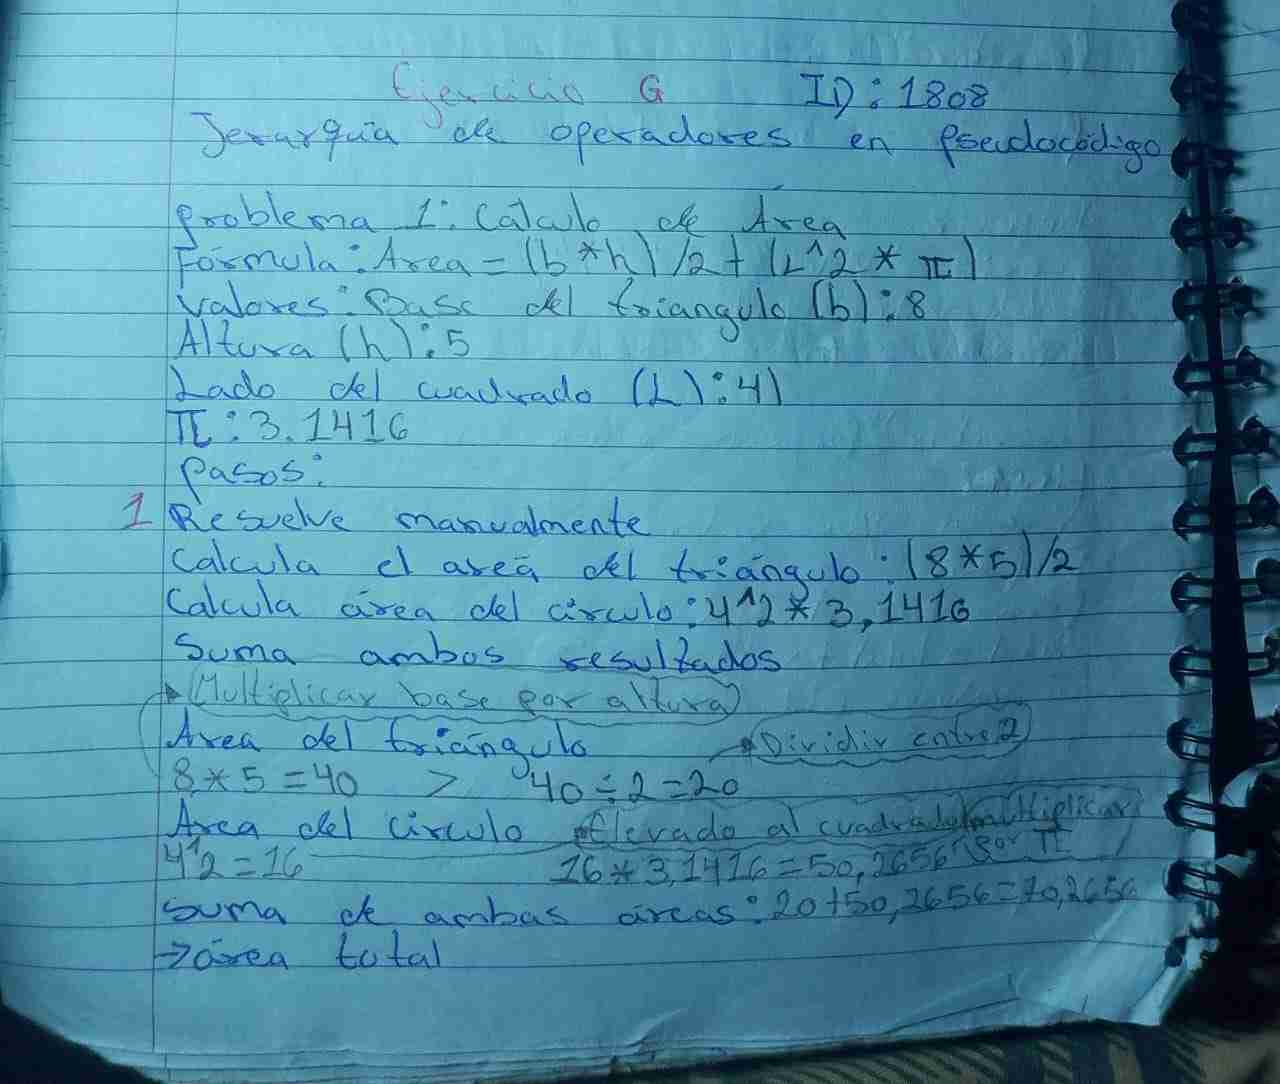 Ejercicio G ID: 1808
Jerarquía de operadores en pseudocódigo
problema 1: Cálculo de Área
Fórmula: Area = (b*h)/2 + (L^2 * π)
Valores: Base del triangulo (b): 8
Altura (h): 5
Lado del cuadrado (L): 4)
π: 3.1416
pasos:
1 Resuelve manualmente
Calcula el area del triángulo: (8*5)/2
Calcula área del círculo: 4^2 * 3,1416
Suma ambos resultados
Multiplicar base por altura
Area del triángulo Dividir entre 2
8 * 5 = 40 > 40 ÷ 2 = 20
Área del círculo Elevado al cuadrado multiplicar
4^2 = 16 16 * 3,1416 = 50,2656 por π
Suma de ambas áreas: 20+50,2656=70,2656
→ área total